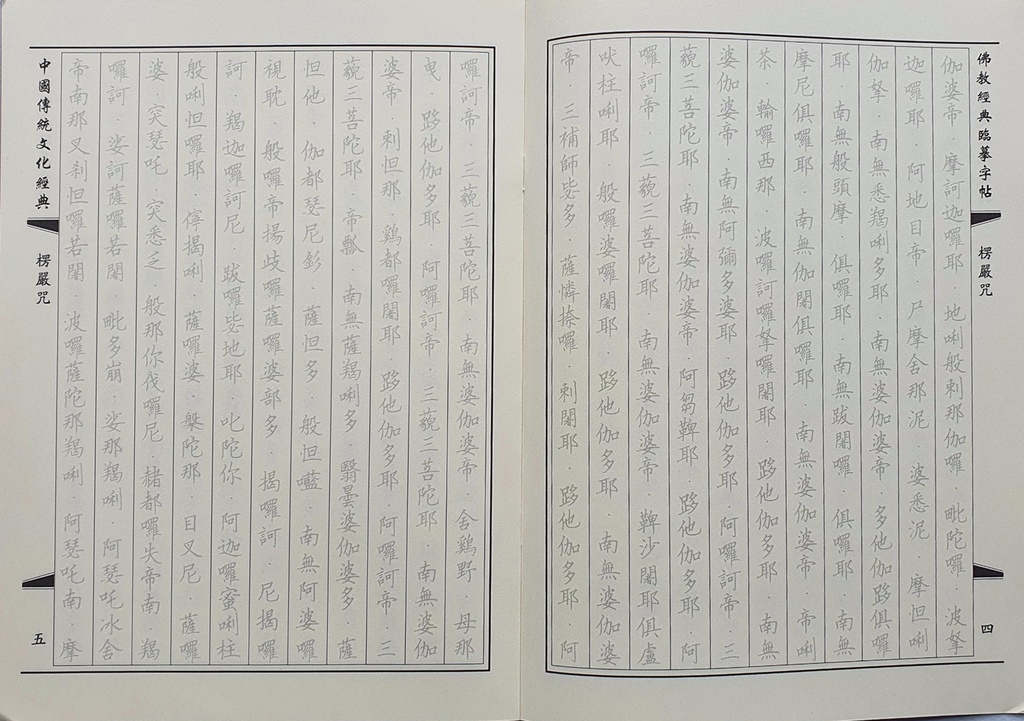 佛教經典臨摹字帖
楞嚴咒
四
伽婆帝．摩訶迦囉耶．地唎般剌那伽囉．毗陀囉．波拏
迦囉耶．阿地目帝．尸摩舍那泥．婆悉泥．摩怛唎
伽拏．南無悉羯唎多耶．南無婆伽婆帝．多他伽跢俱囉
耶．南無般頭摩．俱囉耶．南無跋闍囉．俱囉耶．南無
摩尼俱囉耶．南無伽闍俱囉耶．南無婆伽婆帝．帝唎
茶．輸囉西那．波囉訶囉拏囉闍耶．跢他伽多耶．南無
婆伽婆帝．南無阿彌多婆耶．跢他伽多耶．阿囉訶帝．三
藐三菩陀耶．南無婆伽婆帝．阿芻鞞耶．跢他伽多耶．阿
囉訶帝．三藐三菩陀耶．南無婆伽婆帝．鞞沙闍耶俱盧
吠柱唎耶．般囉婆囉闍耶．跢他伽多耶．南無婆伽婆
帝．三補師毖多．薩憐捺囉．剌闍耶．跢他伽多耶．阿
囉訶帝．三藐三菩陀耶．南無婆伽婆帝．舍鷄野．母那
曳．跢他伽多耶．阿囉訶帝．三藐三菩陀耶．南無婆伽
婆帝．剌怛那．鷄都囉闍耶．跢他伽多耶．阿囉訶帝．三
藐三菩陀耶．帝瓢．南無薩羯唎多．翳曇婆伽婆多．薩
怛他．伽都瑟尼釤．薩怛多．般怛囕．南無阿婆囉
視耽．般囉帝揚歧囉薩囉婆部多．揭囉訶．尼揭囉
訶．羯迦囉訶尼．跋囉毖地耶．叱陀你．阿迦囉蜜唎柱
般唎怛囉耶．儜揭唎．薩囉婆．槃陀那．目叉尼．薩囉
婆．突瑟吒．突悉乏．般那你伐囉尼．赭都囉失帝南．羯
囉訶．娑訶薩囉若闍．毗多崩．娑那羯唎．阿瑟吒冰舍
帝南那叉剎怛囉若闍．波囉薩陀那羯唎．阿瑟吒南．摩
中國傳統文化經典
楞嚴咒
五